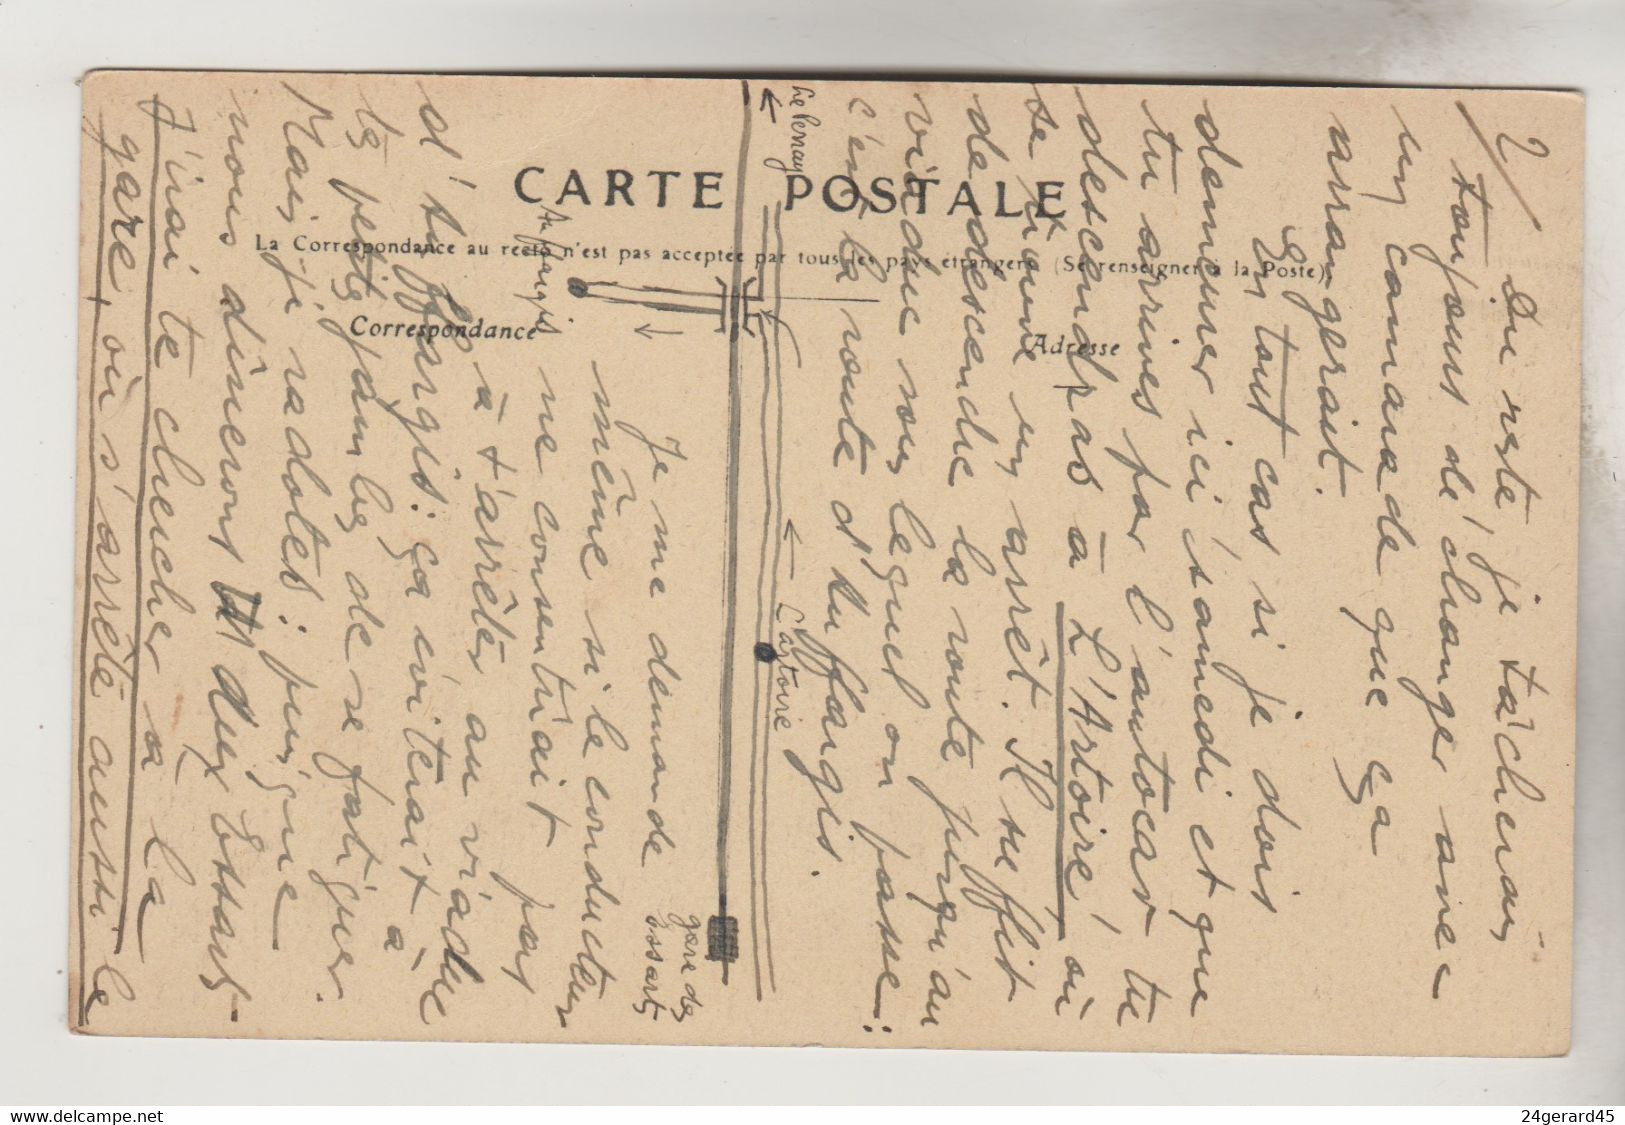 CARTE POSTALE
La Correspondance au recto n'est pas acceptée par tous les pays étrangers (Se renseigner à la Poste)
Correspondance
Adresse
2/ Du reste je tâcherai
toujours de changer avec
un camarade que ça
arrangerait.
En tout cas si je dois
demeurer ici samedi et que
tu arrives par l'autocar tu
descendras à L'Artoire, où
se trouve un arrêt. Il suffit
de descendre la route jusqu'au
viaduc sous lequel on passe :
c'est la route d'Auffargis.
Le Perray
L'artoire
Auffargis
gare des
Essarts
Je me demande
même si le conducteur
ne consentirait pas
à t'arrêter au viaduc
d'Auffargis : ça éviterait à
tes petites jambes de se fatiguer.
Mais je radote : puisque
nous dînerons aux Essarts
j'irai te chercher à la
gare, où s'arrête aussi le
maxence-carte.com
24gerard45